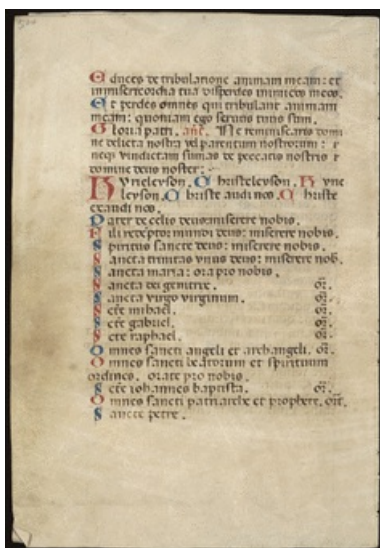 Educes de tribulatione animam meam: et
in misericordia tua disperdes inimicos meos.
Et perdes omnes qui tribulant animam
meam: quoniam ego servus tuus sum.
Gloria patri. añt. Ne reminiscaris domi
ne delicta nostra vel parentum nostrorum: n
neqȝ vindictam sumas de peccatis nostris
domine deus noster:
Kyrieleyson. Christeleyson. Kyrie
leyson. Christe audi nos. Christe
exaudi nos.
Pater de celis deus: miserere nobis.
Fili redeptor mundi deus: miserere nobis.
Spiritus sancte deus: miserere nobis.
Sancta trinitas unus deus: miserere nob.
Sancta maria: ora pro nobis.
Sancta dei genitrix. or.
Sancta virgo virginum. or.
Scē mihael. or.
Scē gabriel. or.
Scē raphael. or.
Omnes sancti angeli et archangeli. or.
Omnes sancti beatorum et spirituum
ordines. orate pro nobis.
Scē iohannes baptista. or.
Omnes sancti patriarche et prophete. orт.
Sancte petre.